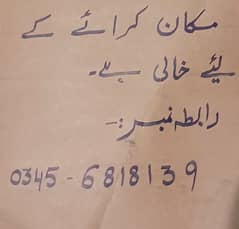 مکان کرائے کے
لئے خالی ہے۔
رابطہ نمبر:-
0345-6818139